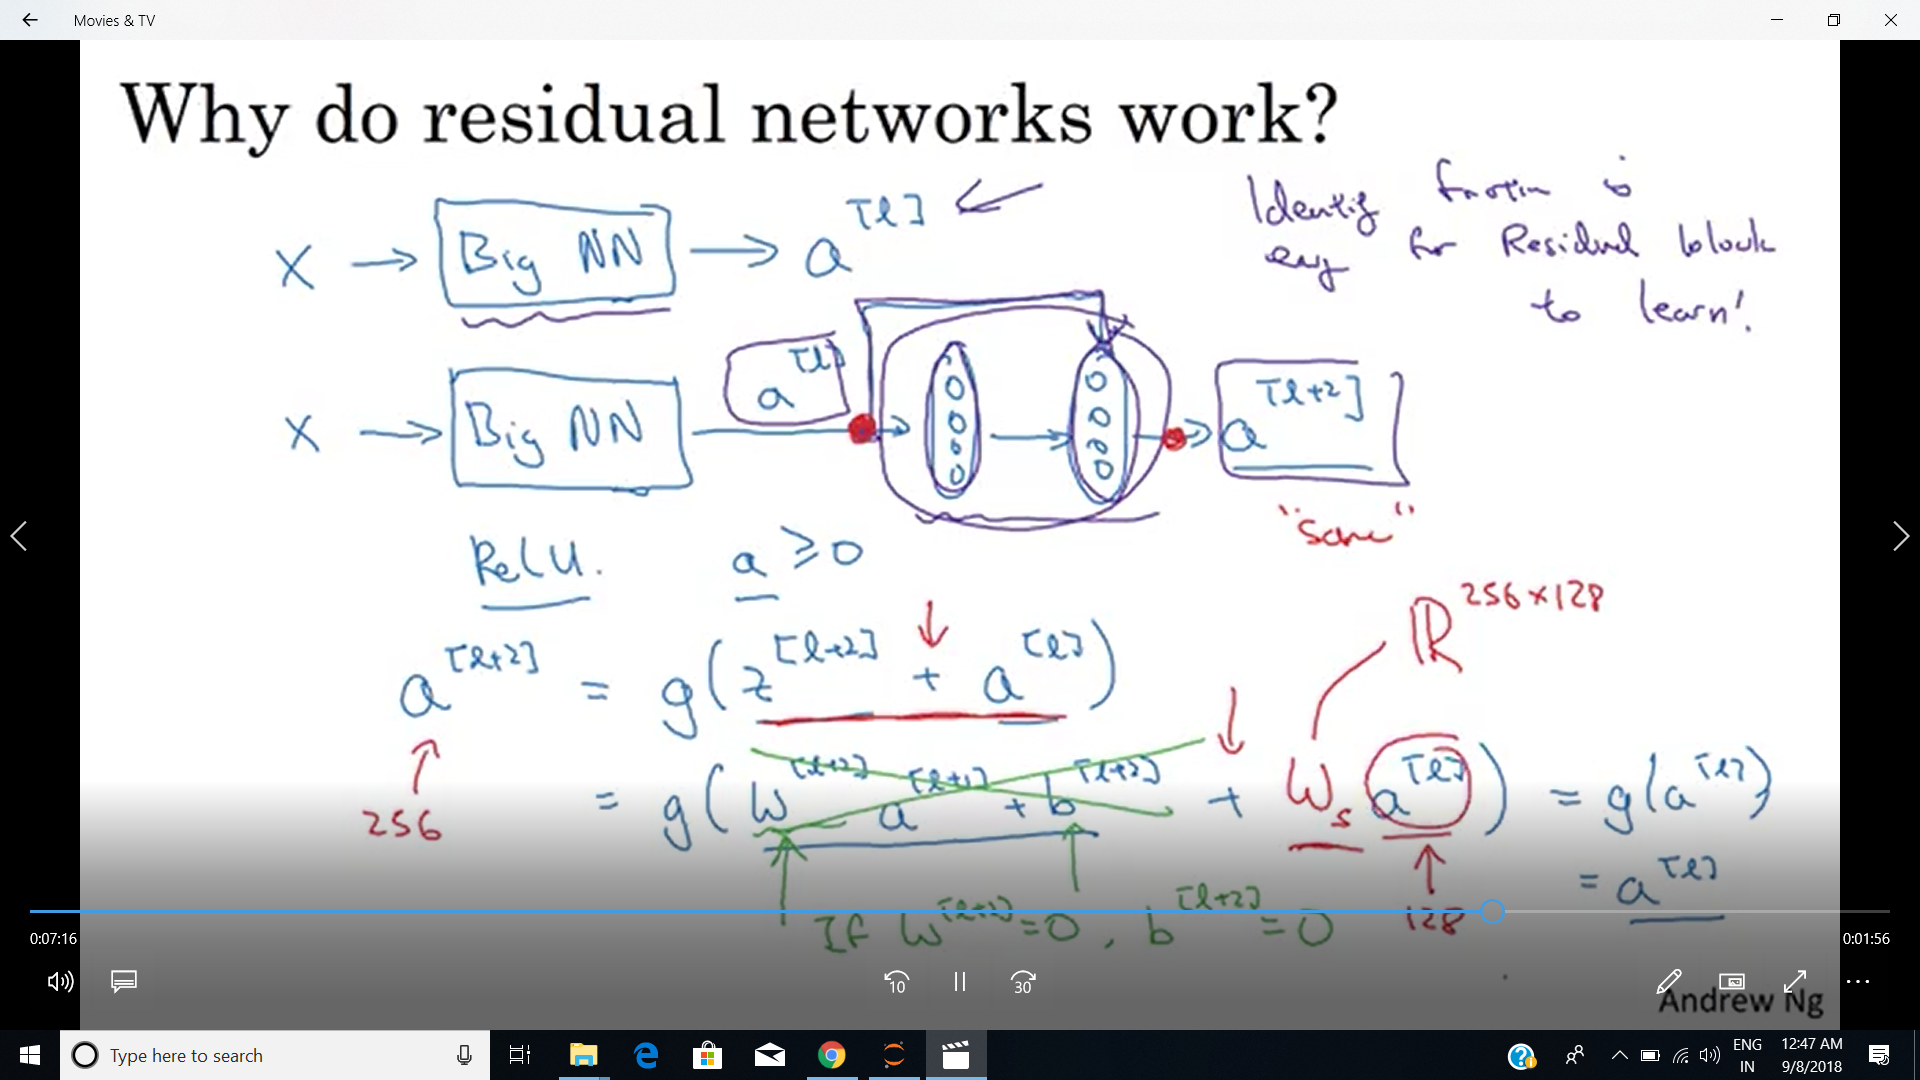 Movies & TV
Why do residual networks work?
X → Big NN → a[l]
Identity function is
easy for Residual block
to learn!
X → Big NN a[l] → a[l+2]
"same"
ReLU. a ≥ 0
R 256×128
a[l+2] = g(z[l+2] + a[l])
256
= g(W[l+2] a[l+1] + b[l+2] + Ws a[l]) = g(a[l])
= a[l]
If W[l+2] = 0, b[l+2] = 0
128
0:07:16
0:01:56
10
30
Andrew Ng
Type here to search
ENG
IN
12:47 AM
9/8/2018